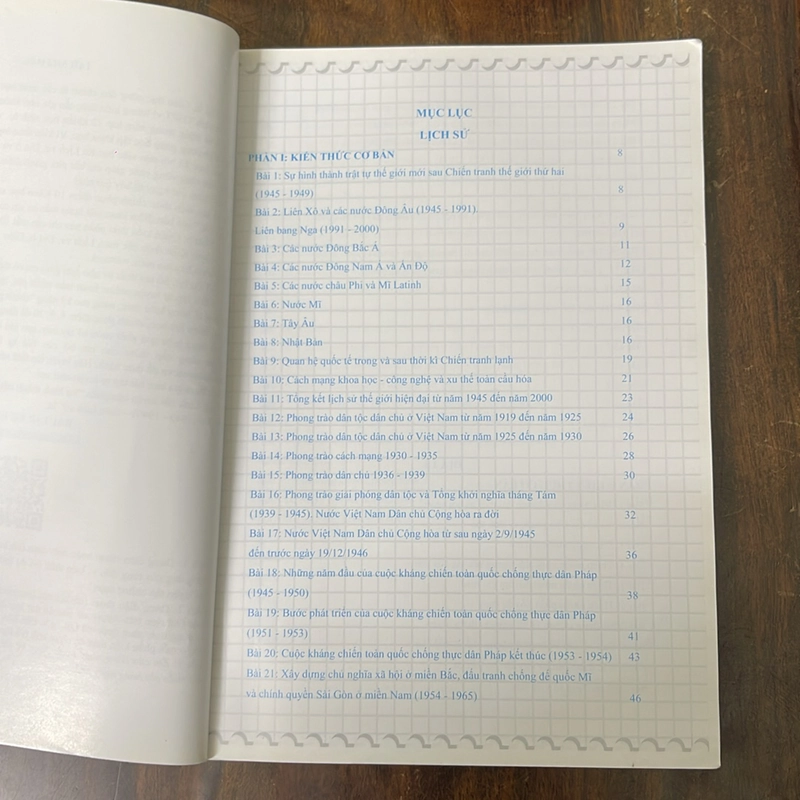 MỤC LỤC
LỊCH SỬ
PHẦN I: KIẾN THỨC CƠ BẢN 8
Bài 1: Sự hình thành trật tự thế giới mới sau Chiến tranh thế giới thứ hai
(1945 - 1949) 8
Bài 2: Liên Xô và các nước Đông Âu (1945 - 1991).
Liên bang Nga (1991 - 2000) 9
Bài 3: Các nước Đông Bắc Á 11
Bài 4: Các nước Đông Nam Á và Ấn Độ 12
Bài 5: Các nước châu Phi và Mĩ Latinh 15
Bài 6: Nước Mĩ 16
Bài 7: Tây Âu 16
Bài 8: Nhật Bản 16
Bài 9: Quan hệ quốc tế trong và sau thời kì Chiến tranh lạnh 19
Bài 10: Cách mạng khoa học - công nghệ và xu thế toàn cầu hóa 21
Bài 11: Tổng kết lịch sử thế giới hiện đại từ năm 1945 đến năm 2000 23
Bài 12: Phong trào dân tộc dân chủ ở Việt Nam từ năm 1919 đến năm 1925 24
Bài 13: Phong trào dân tộc dân chủ ở Việt Nam từ năm 1925 đến năm 1930 26
Bài 14: Phong trào cách mạng 1930 - 1935 28
Bài 15: Phong trào dân chủ 1936 - 1939 30
Bài 16: Phong trào giải phóng dân tộc và Tổng khởi nghĩa tháng Tám
(1939 - 1945). Nước Việt Nam Dân chủ Cộng hòa ra đời 32
Bài 17: Nước Việt Nam Dân chủ Cộng hòa từ sau ngày 2/9/1945
đến trước ngày 19/12/1946 36
Bài 18: Những năm đầu của cuộc kháng chiến toàn quốc chống thực dân Pháp
(1945 - 1950) 38
Bài 19: Bước phát triển của cuộc kháng chiến toàn quốc chống thực dân Pháp
(1951 - 1953) 41
Bài 20: Cuộc kháng chiến toàn quốc chống thực dân Pháp kết thúc (1953 - 1954) 43
Bài 21: Xây dựng chủ nghĩa xã hội ở miền Bắc, đấu tranh chống đế quốc Mĩ
và chính quyền Sài Gòn ở miền Nam (1954 - 1965) 46